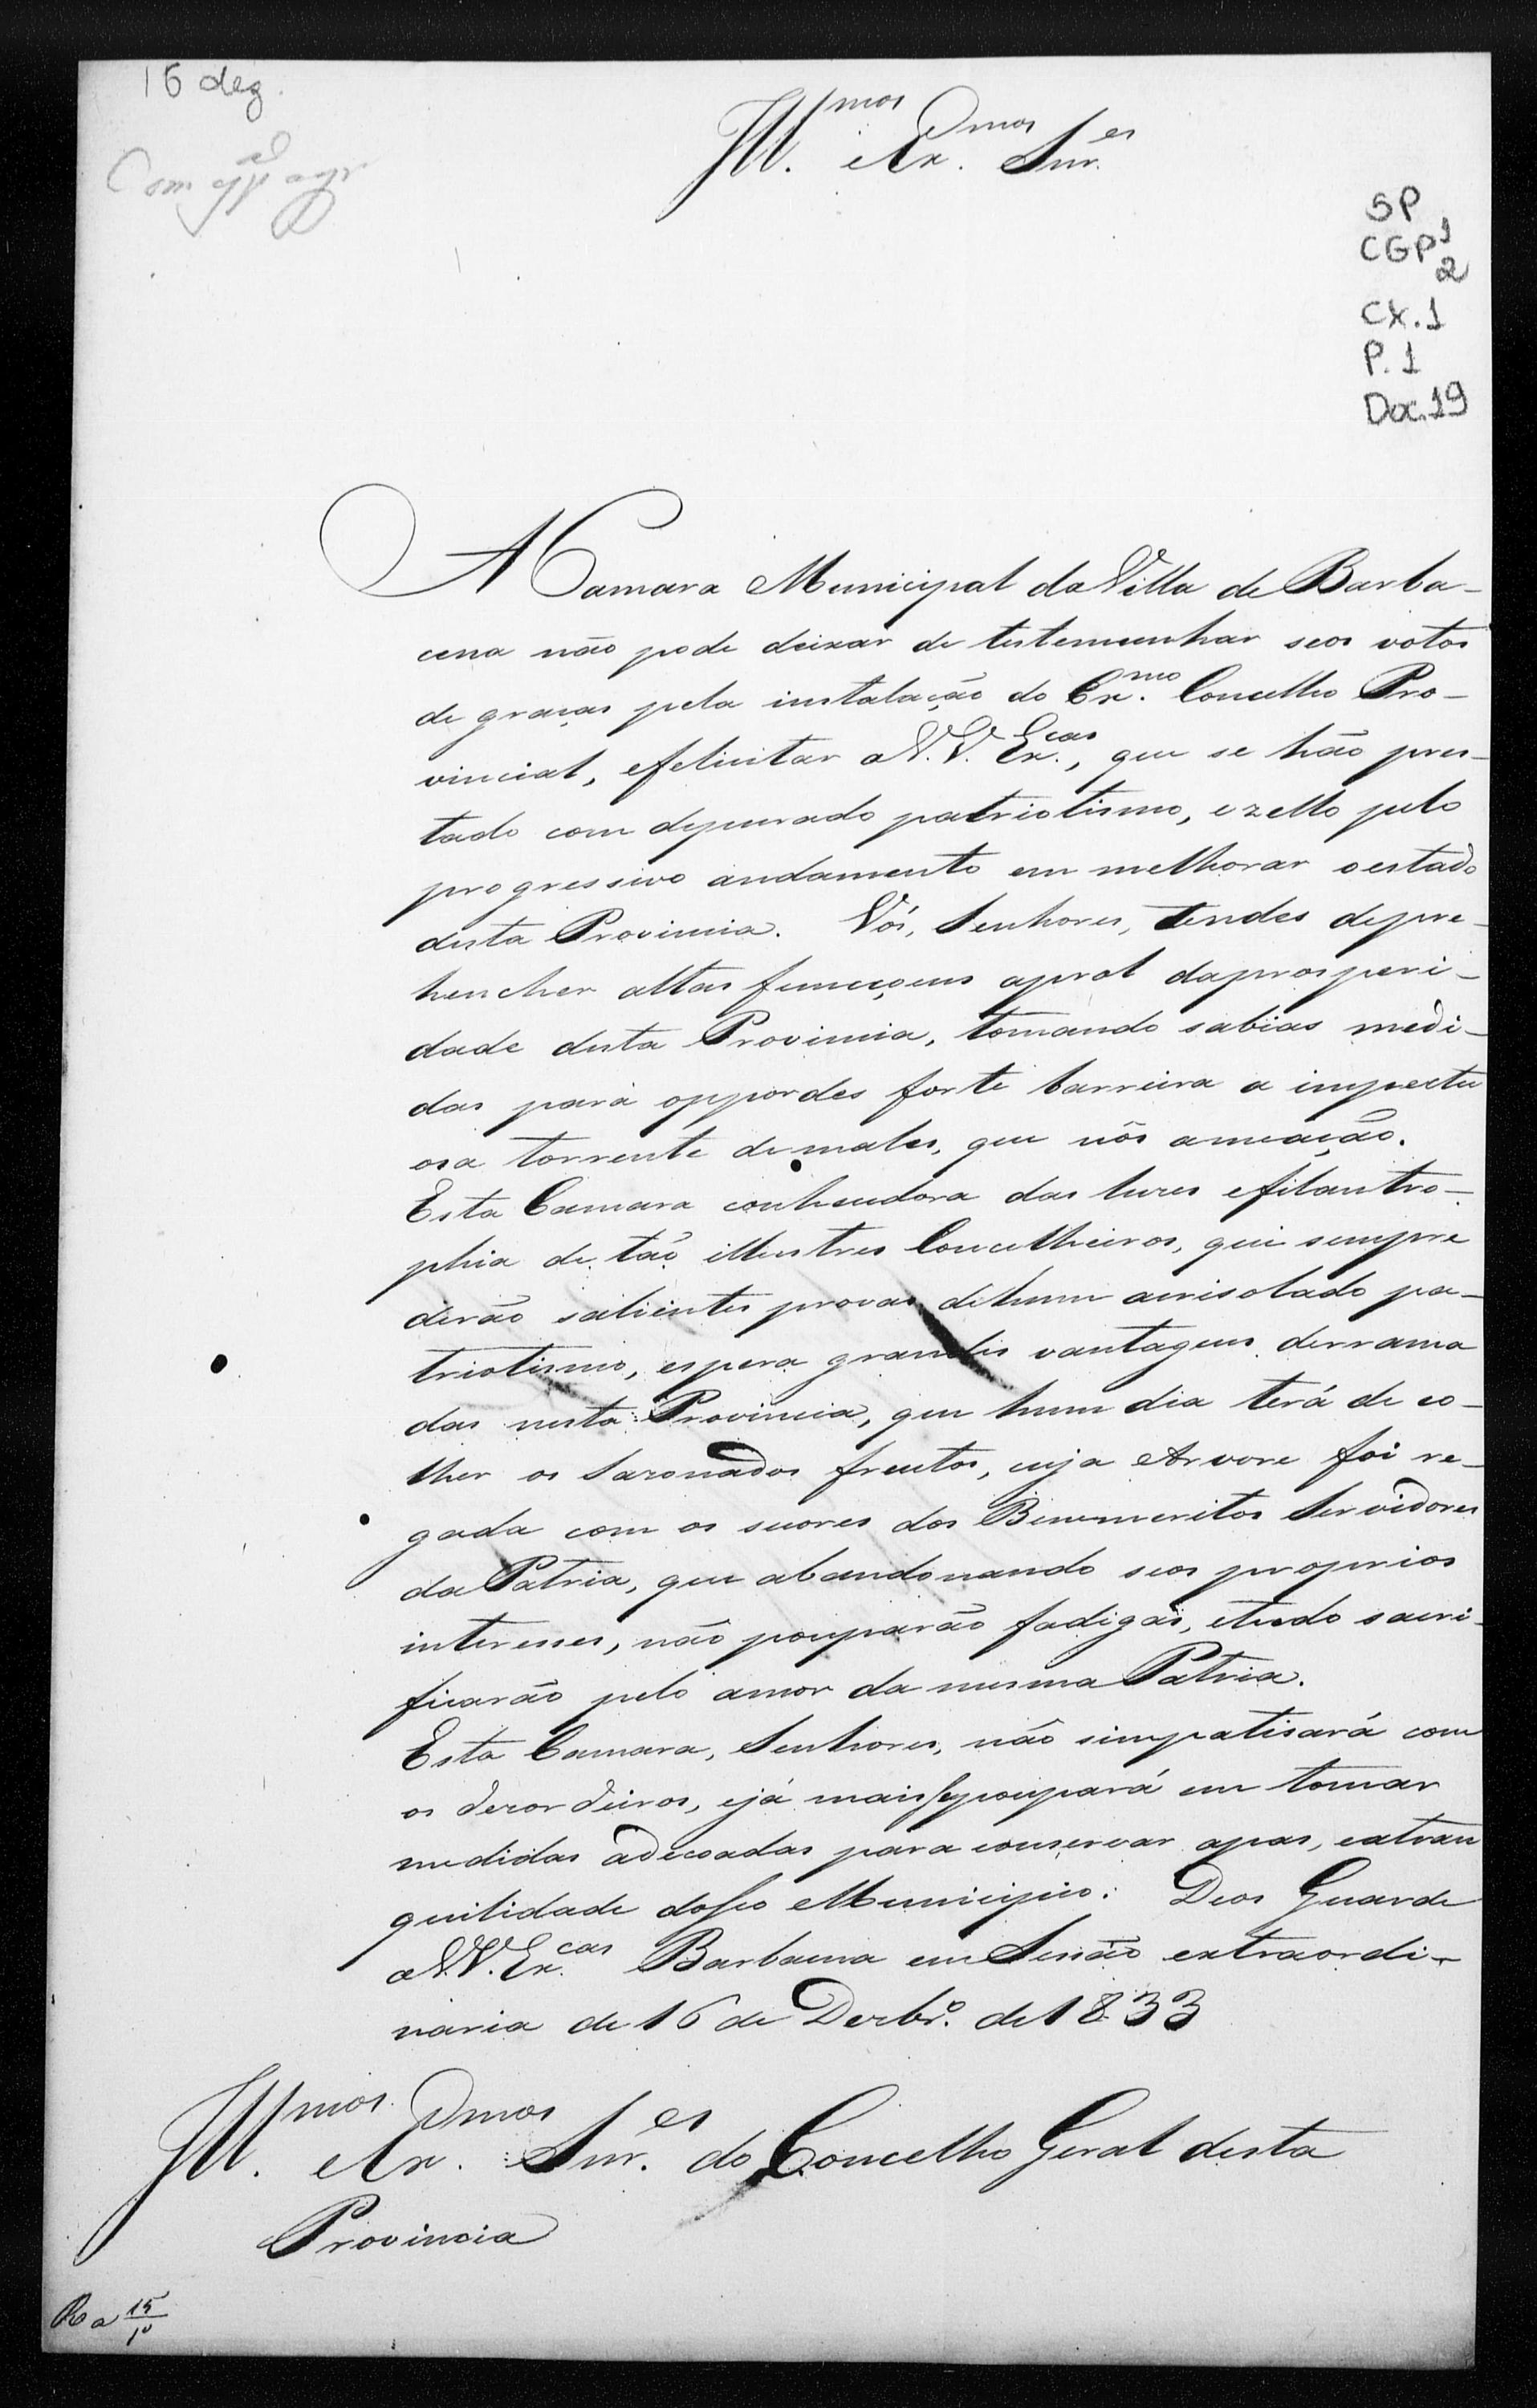 16 dez.
Ill.mos Ex.mos Snr.es
Com
SP
CGP1
2
CX.1
P.1
Doc.19
A Camara Municipal da Villa de Barba-
cena não pode deixar de testemunhar seos votos
de graças pela instalação do Ex.mo Concelho Pro-
vincial, efelicitar aV.V. Ex.cas, que se hão pres-
tado com depurado patriotismo, ezello pelo
progressivo andamento em melhorar oestado
desta Provincia. Vós, Senhores, tendes depre-
hencher altas funcçoens aprol daprosperi-
dade desta Provincia, tomando sabias medi-
das para oppordes forte barreira a impectu
osa torrente de males, que nós ameação.
Esta Camara conhecedora das luzes efilantro-
phia de tão illustres Concelheiros, que sempre
derão salientes provas dehum acrisolado pa-
triotismo, espera grandes vantagens derrama
das nesta Provincia, que hum dia terá de co-
lher os Sazonados fructos, cuja Arvore foi re-
gada com os suores dos Benemeritos Servidores
da Patria, que abandonando seos proprios
interesses, não pouparão fadigas, etudo sacri-
ficarão pelo amor da mesma Patria.
Esta Camara, Senhores, não simpatisará com
os dezordeiros, ejá mais sepoupará em tomar
medidas adecoadas para conservar apas, eatran
quilidade doseo Municipio. Deos Guarde
aV.V. Ex.cas Barbacena em Sessão extraordi-
naria de 16 de Dezbr.o de 1833
Ill.mos Ex.mos Snr.es do Concelho Geral desta
Provincia
Ra 15/10